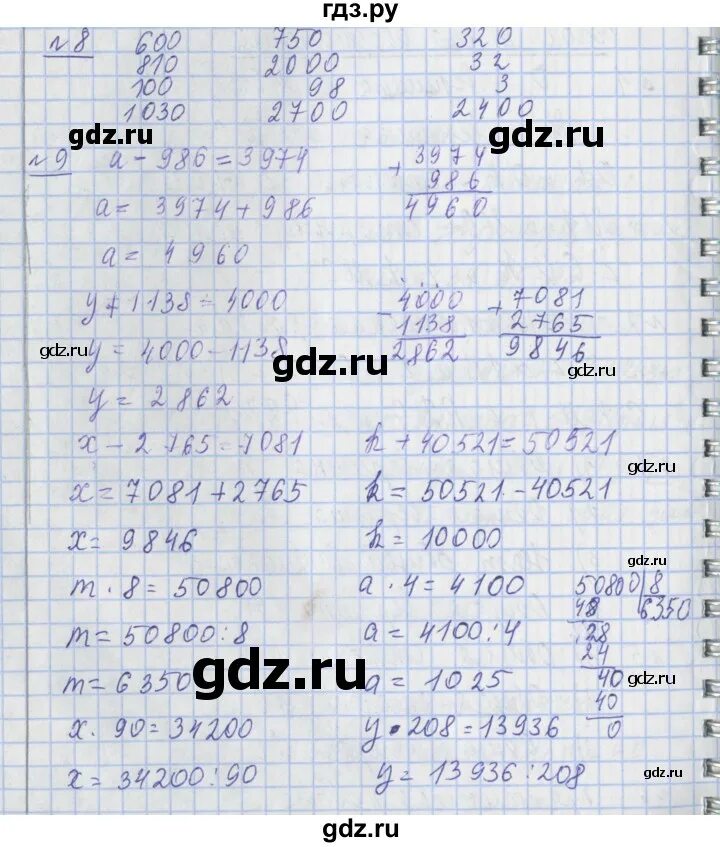 гдз.ру
№8 600 750 320
810 2000 32
100 98 3
1030 2700 2400
gdz.ru gdz.ru
№9 a - 986 = 3974 + 3974
a = 3974 + 986 986
a = 4960 4960
y + 1138 = 4000 - 4000 + 7081
gdz.ru y = 4000 - 1138 1138 2765
gdz.ru 2862 9846
y = 2862 gdz.ru
x - 2765 = 7081 k + 40521 = 50521
gdz.ru
x = 7081 + 2765 k = 50521 - 40521
x = 9846 k = 10000
gdz.ru
m · 8 = 50800 a · 4 = 4100 50800 8
48 6350
m = 50800 : 8 a = 4100 : 4 28
24
m = 6350 gdz.ru a = 1025 40 gdz.ru
40
x · 90 = 34200 y · 208 = 13936 0
x = 34200 : 90 y = 13936 : 208
gdz.ru gdz.ru
gdz.ru